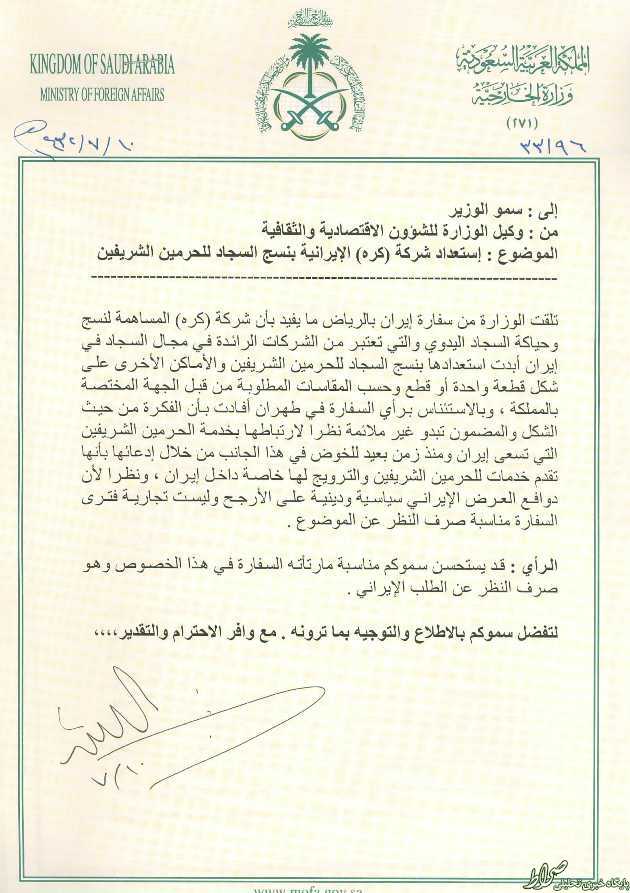 KINGDOM OF SAUDI ARABIA
MINISTRY OF FOREIGN AFFAIRS
المملكة العربية السعودية
وزارة الخارجية
(٢٧١)
٣٣/٩٦
إلى : سمو الوزير
من : وكيل الوزارة للشؤون الاقتصادية والثقافية
الموضوع : إستعداد شركة (كره) الإيرانية بنسج السجاد للحرمين الشريفين
تلقت الوزارة من سفارة إيران بالرياض ما يفيد بأن شركة (كره) المساهمة لنسج
وحياكة السجاد اليدوي والتي تعتبر من الشركات الرائدة في مجال السجاد في
إيران أبدت استعدادها بنسج السجاد للحرمين الشريفين والأماكن الأخرى على
شكل قطعة واحدة أو قطع وحسب المقاسات المطلوبة من قبل الجهة المختصة
بالمملكة ، وبالاستئناس برأي السفارة في طهران أفادت بأن الفكرة من حيث
الشكل والمضمون تبدو غير ملائمة نظرا لارتباطها بخدمة الحرمين الشريفين
التي تسعى إيران ومنذ زمن بعيد للخوض في هذا الجانب من خلال إدعائها بأنها
تقدم خدمات للحرمين الشريفين والترويج لها خاصة داخل إيران ، ونظرا لأن
دوافع العرض الإيراني سياسية ودينية على الأرجح وليست تجارية فترى
السفارة مناسبة صرف النظر عن الموضوع .
الرأي : قد يستحسن سموكم مناسبة مارتأته السفارة في هذا الخصوص وهو
صرف النظر عن الطلب الإيراني .
لتفضل سموكم بالاطلاع والتوجيه بما ترونه . مع وافر الاحترام والتقدير،،،،
٧/١٠
www.mofa.gov.sa
صراط
پایگاه خبری تحلیلی